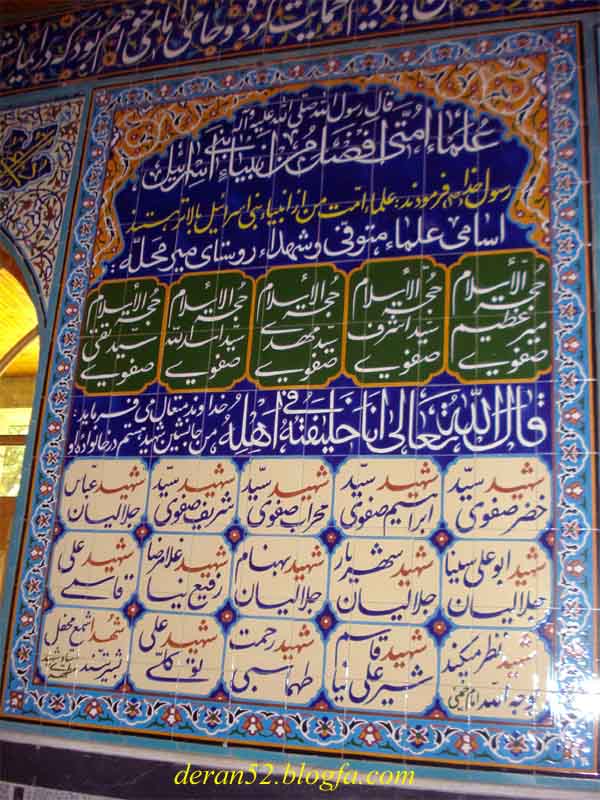 حمایت کرده و حامی انسانی خواهم بود که در
قال رسول الله صلی الله علیه و آله
علماء امتی افضل من انبیاء بنی اسرائیل
رسول خدا فرمودند: علماء امت من از انبیاء بنی اسرائیل بالاتر هستند
اسامی علماء متوفی و شهداء روستای میر محله:
حجة الاسلام میر عظیم صفوی
حجة الاسلام سید اشرف صفوی
حجة الاسلام سید مهدی صفوی
حجة الاسلام سید اسدالله صفوی
حجة الاسلام سید تقی صفوی
قال الله تعالی انا خلیفته فی اهله
خداوند متعال می فرماید:
من جانشین شهید هستم در خانواده او
شهید سید خضر صفوی
شهید سید ابراهیم صفوی
شهید سید محراب صفوی
شهید سید شریف صفوی
شهید عباس جلالیان
شهید ابو علی سینا جلالیان
شهید شهریار جلالیان
شهید بهنام جلالیان
شهید غلامرضا رفیع نیا
شهید علی قاسمی
شهید نظر میکند بوجه الله
امام خمینی
شهید قاسم شیر علی نیا
شهید رحمت طهماسبی
شهید علی توکلی
شهدا شمع محفل بشریتند
deran52.blogfa.com